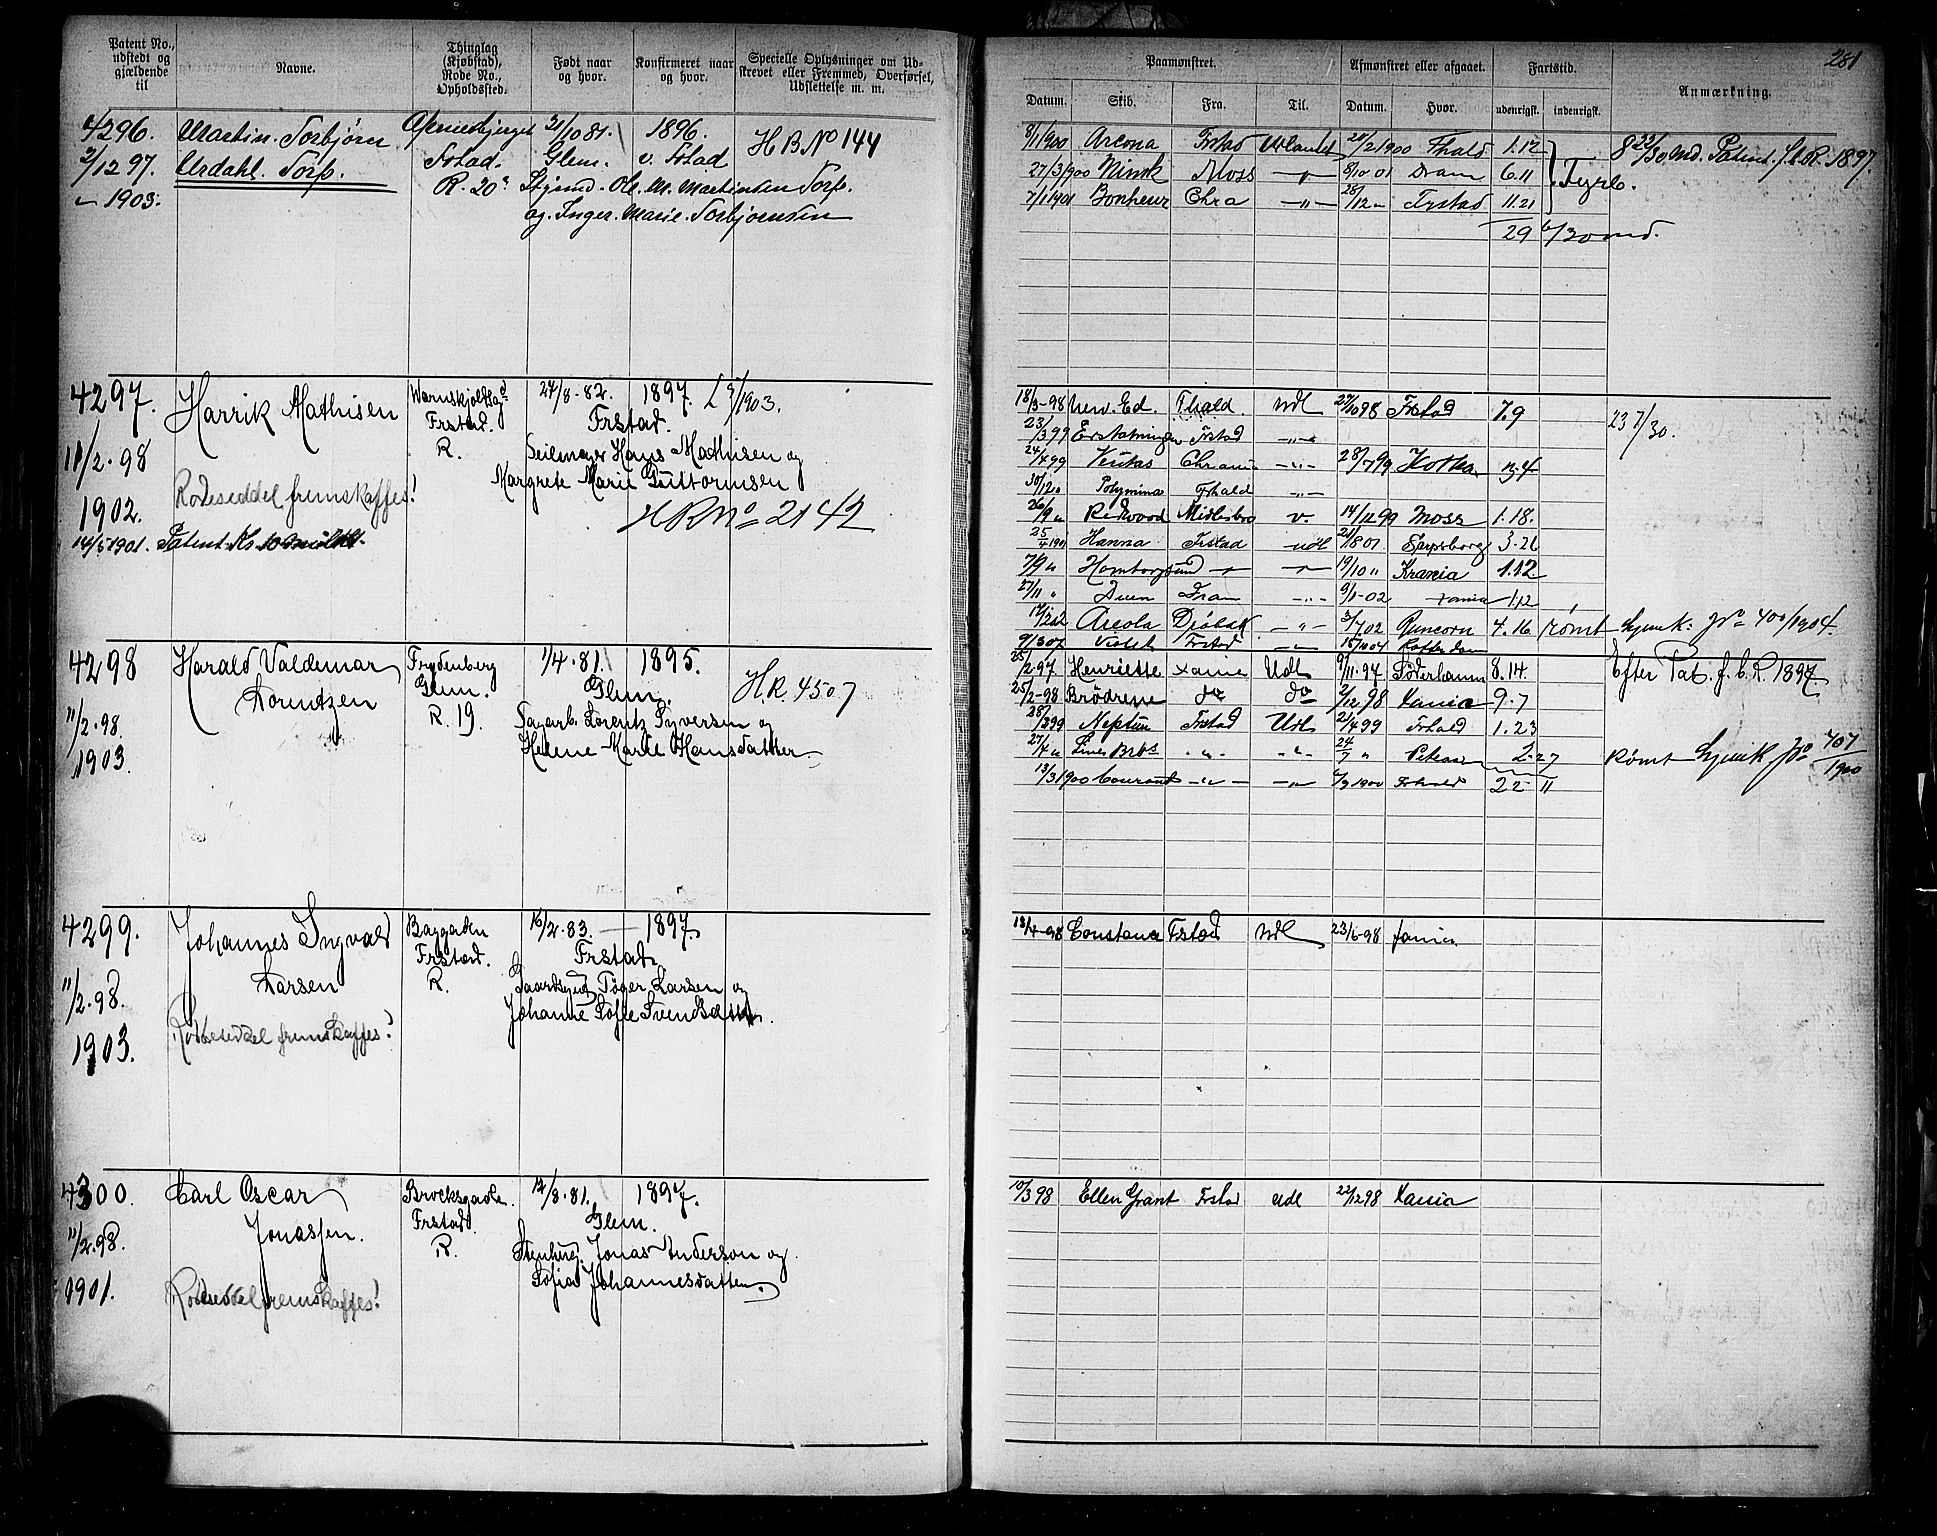 281
Patent No., udstedt og gjældende til
Navne.
Thinglag (Kjøbstad), Rode No., Opholdssted.
Født naar og hvor.
Konfirmeret naar og hvor.
Specielle Oplysninger om Udskrevet eller Fremmed, Overførsel, Udslettelse m. m.
Paamønstret.
Afmønstret eller afgaaet.
Fartstid.
Anmærkning.
Datum.
Skib.
Fra.
Til.
Datum.
Hvor.
udenrigsk.
indenrigsk.
4296. Martin Torbjørn 31/10 81. 1896. H B No 144
2/12 97. Urdahl Torp. Fstad. Glem. v. Fstad
" 1903. R. 20 Ole M. Martinsen Torp.
og Inger Marie Torbjørnsen
8/1 1900 Arcona Frstad Udlandet 21/2 1900 Fhald 1.12
27/3 1900 Moss 01 Dram 6.11
7/1 1901 Bonheur Chra —"— 28/12 " Frstad 11.21
29 6/30 md.
Patent f. f. R. 1897.
4297. Harrik Mathisen 24/8-82. 1897. L 9/7 1903.
Frstad. Frstad.
11/2-98 R. Seilmager Hans Mathisen og
Rodeseddel fremskaffes! Margrete Marie Guttormsen
1902. H R No 2142
14/5 1901. Patent
18/3-98 New. Ed. Fhald Udl 98 Frstad 7.9 23 7/30.
23/3 99 Erstatningen Frstad —"—
24/4 99 Veritas Chrania —"— 28/7 99 Kotka
30/12 " Polymina Fhald —"—
26/9 " Redwood Midlesbro v. 14/12 99 Moss 1.18.
25/4 1901 Hanna Frstad udl 21/8 01 Sarpsborg 3.26
7/9 " Homborgsund 19/10 " Krania 1.12
27/11 " Duen Dram —"— 9/1-02 Xania 1.12
Areola Drøbak —"— 3/7 02 Runcorn 4.16 rømt Hjemk: Jr 400/1904.
Frstad 15/10 04 Rotterdam
4298 Harald Valdemar Frydenberg 1/4-81. 1895.
Lorentzen Glem. Glem. H.R. 4507
11/2-98. R. 19. Lorentz Syversen og
1903. Helene Marie Hansdatter
25/2-97 Henriette Xania Udl 9/11-97 Söderhamn 8.14. Efter Pat. f. f. R. 1897.
25/2-98 Brödrene do do 2/12 98 Xania 9.7
28/2 99 Neptun Frstad Udl 2/4 99 Frhald 1.23
27/4 " Lines Bros " " —"— 24/7 " 2-27 Rømt Hjemk Jr 407/1900
13/3 1900 Courant —"— —"— 1900 Frhald 22 11
4299. Johannes Ingvald Baggaden 16/2.83. — 1897.
Larsen Frstad. Frstad.
11/2-98. R. Tøger Larsen og
Rodeseddel fremskaffes! Johanne Sofie Svendsdatter.
1903.
13/4-98 Constance Fstad Udl 23/6-98 Xania
4300. Carl Oscar Brocksgade. 12/8.81. 1897.
Jonassen. Frstad. Glem.
11/2-98. R. Stenhug. Jonas Anderson og
1901. Sofia Johannesdatter.
Rodeseddel fremskaffes!
10/3 98 Ellen Grant Frstad Udl 22/12 98 Xania